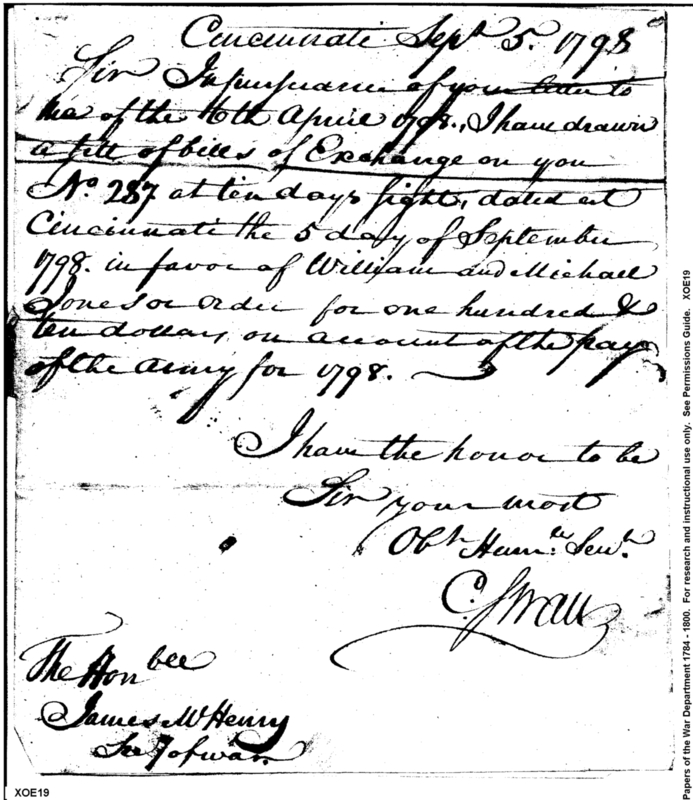 Cincinnati Sept. 5. 1798
Sir In pursuance of your letter to
me of the 16th April 1798, I have drawn
a sett of bills of Exchange on you
No. 287 at ten days sight, dated at
Cincinnati the 5 day of September
1798. in favor of William and Michael
Jones or Order for one hundred &
ten dollars, on account of the pay
of the Army for 1798.
I have the honor to be
Sir your most
Obt. Humble. Servt.
C. Swan
The Honbee
James McHenry
Secy of war.
XOE19
Papers of the War Department 1784 - 1800. For research and instructional use only. See Permissions Guide. XOE19